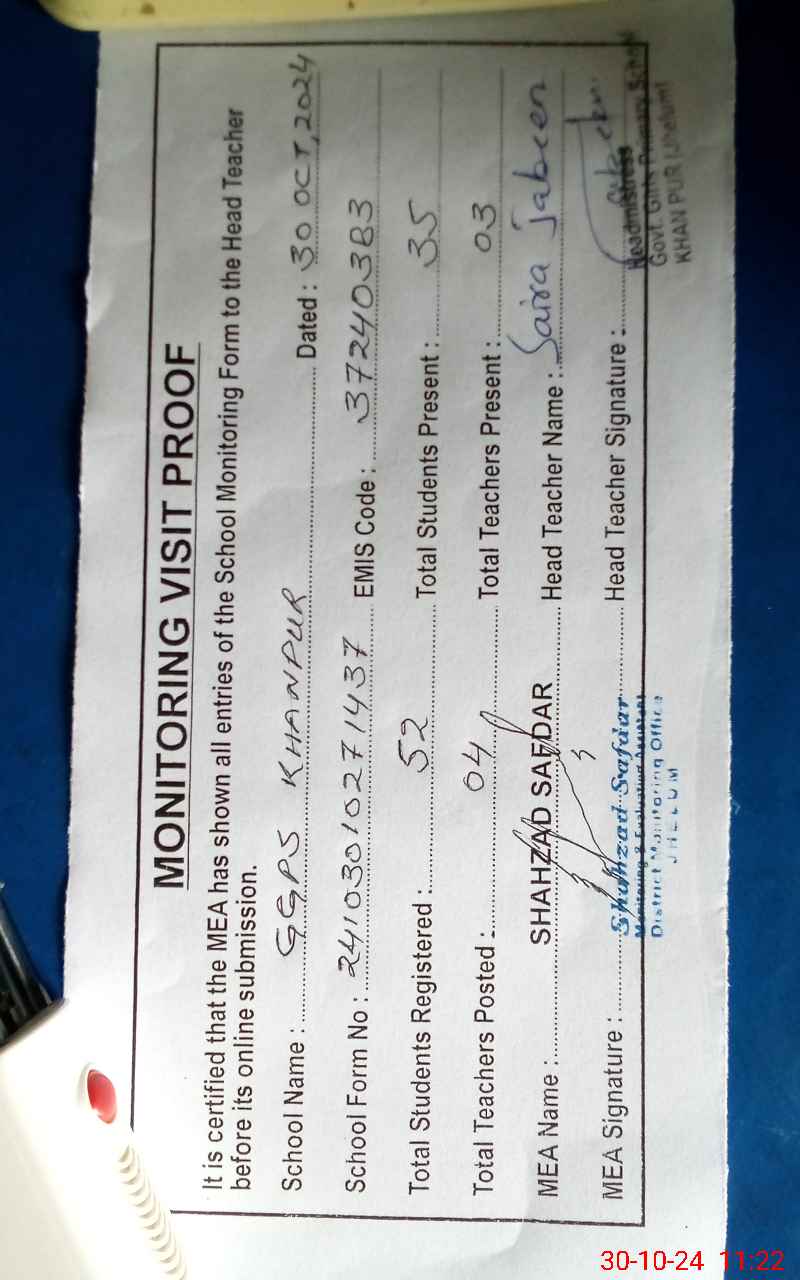 MONITORING VISIT PROOF
It is certified that the MEA has shown all entries of the School Monitoring Form to the Head Teacher
before its online submission.
School Name : GGPS KHANPUR Dated : 30 OCT, 2024
School Form No : 2410301027 1437 EMIS Code : 37240383
Total Students Registered : 52 Total Students Present : 35
Total Teachers Posted : 04 Total Teachers Present : 03
MEA Name : SHAHZAD SAFDAR Head Teacher Name : Saira Jabeen
MEA Signature : Head Teacher Signature :
Shahzad Safdar
Monitoring & Evaluation Assistant
District Monitoring Office
JHELUM
Headmistress
Govt. Girls Primary School
KHAN PUR (Jhelum)
30-10-24 11:22